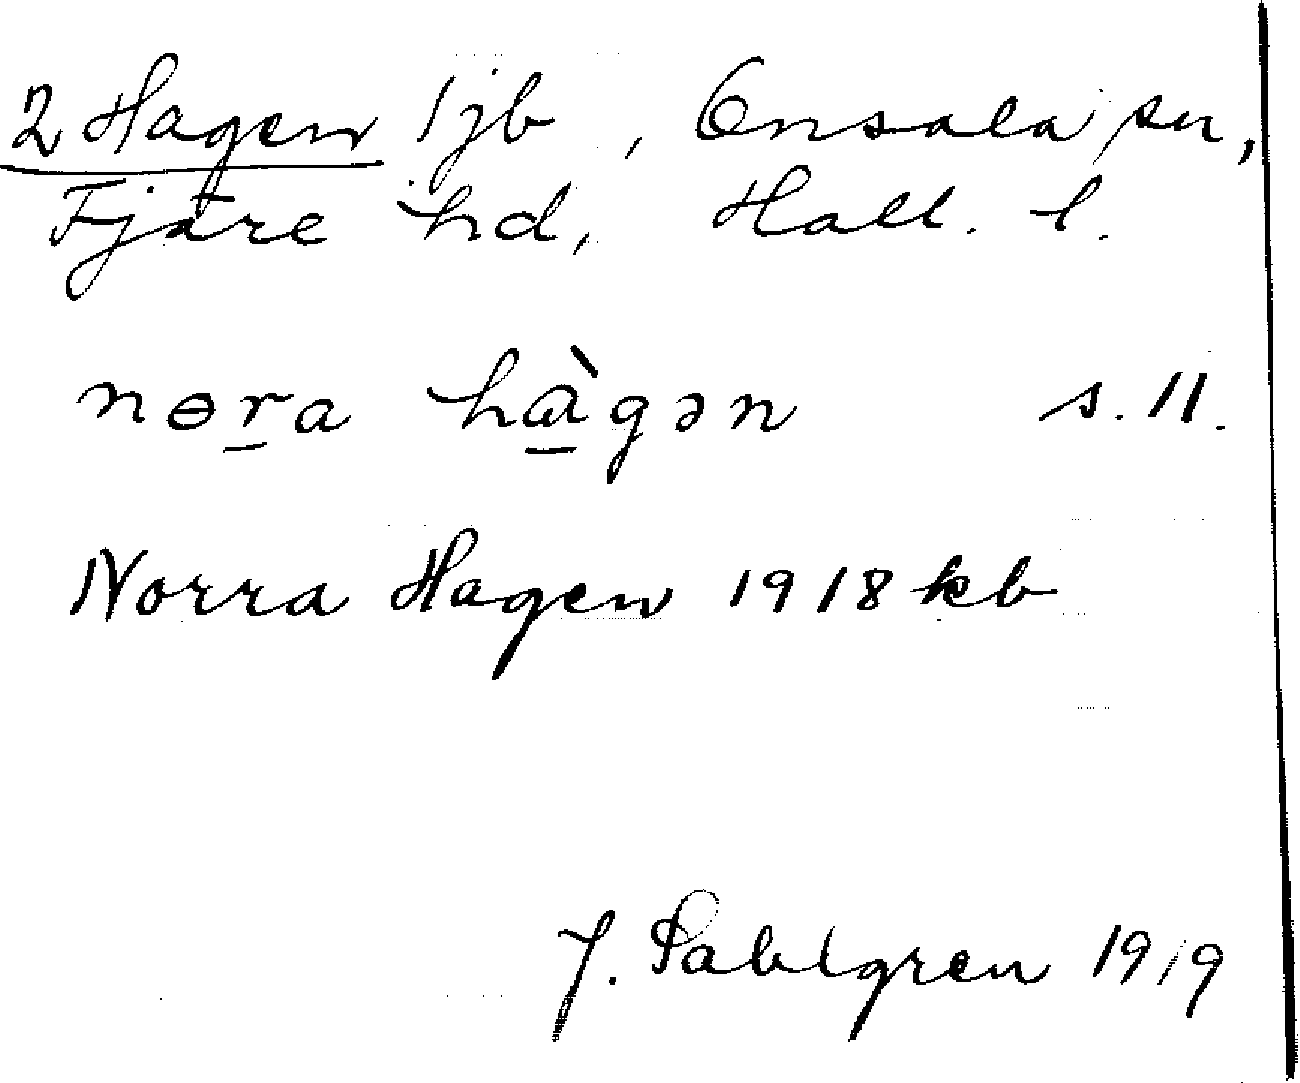 2 Hagen 1 jb, Onsala sn,
Fjäre hd, Hall. l.
nɵra hàgən s. 11.
Norra Hagen 1918 kb
J. Sahlgren 1919